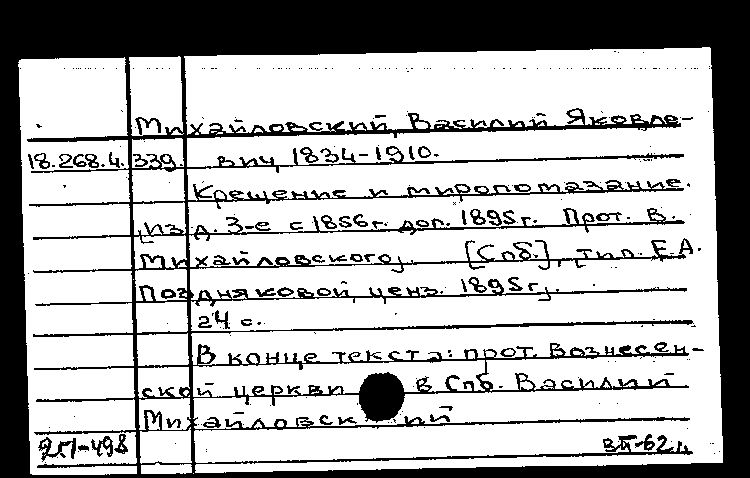 Михайловский, Василий Яковле-
18.268.4.339. вич, 1834-1910.
Крещение и миропомазание.
[Изд. 3-е с 1856г. доп. 1895г. Прот. В.
Михайловского]. [Спб.], [тип. Е.А.
Поздняковой, ценз. 1895г].
24 с.
В конце текста: прот. Вознесен-
ской церкви в Спб. Василий
Михайловск ий
251-498 62